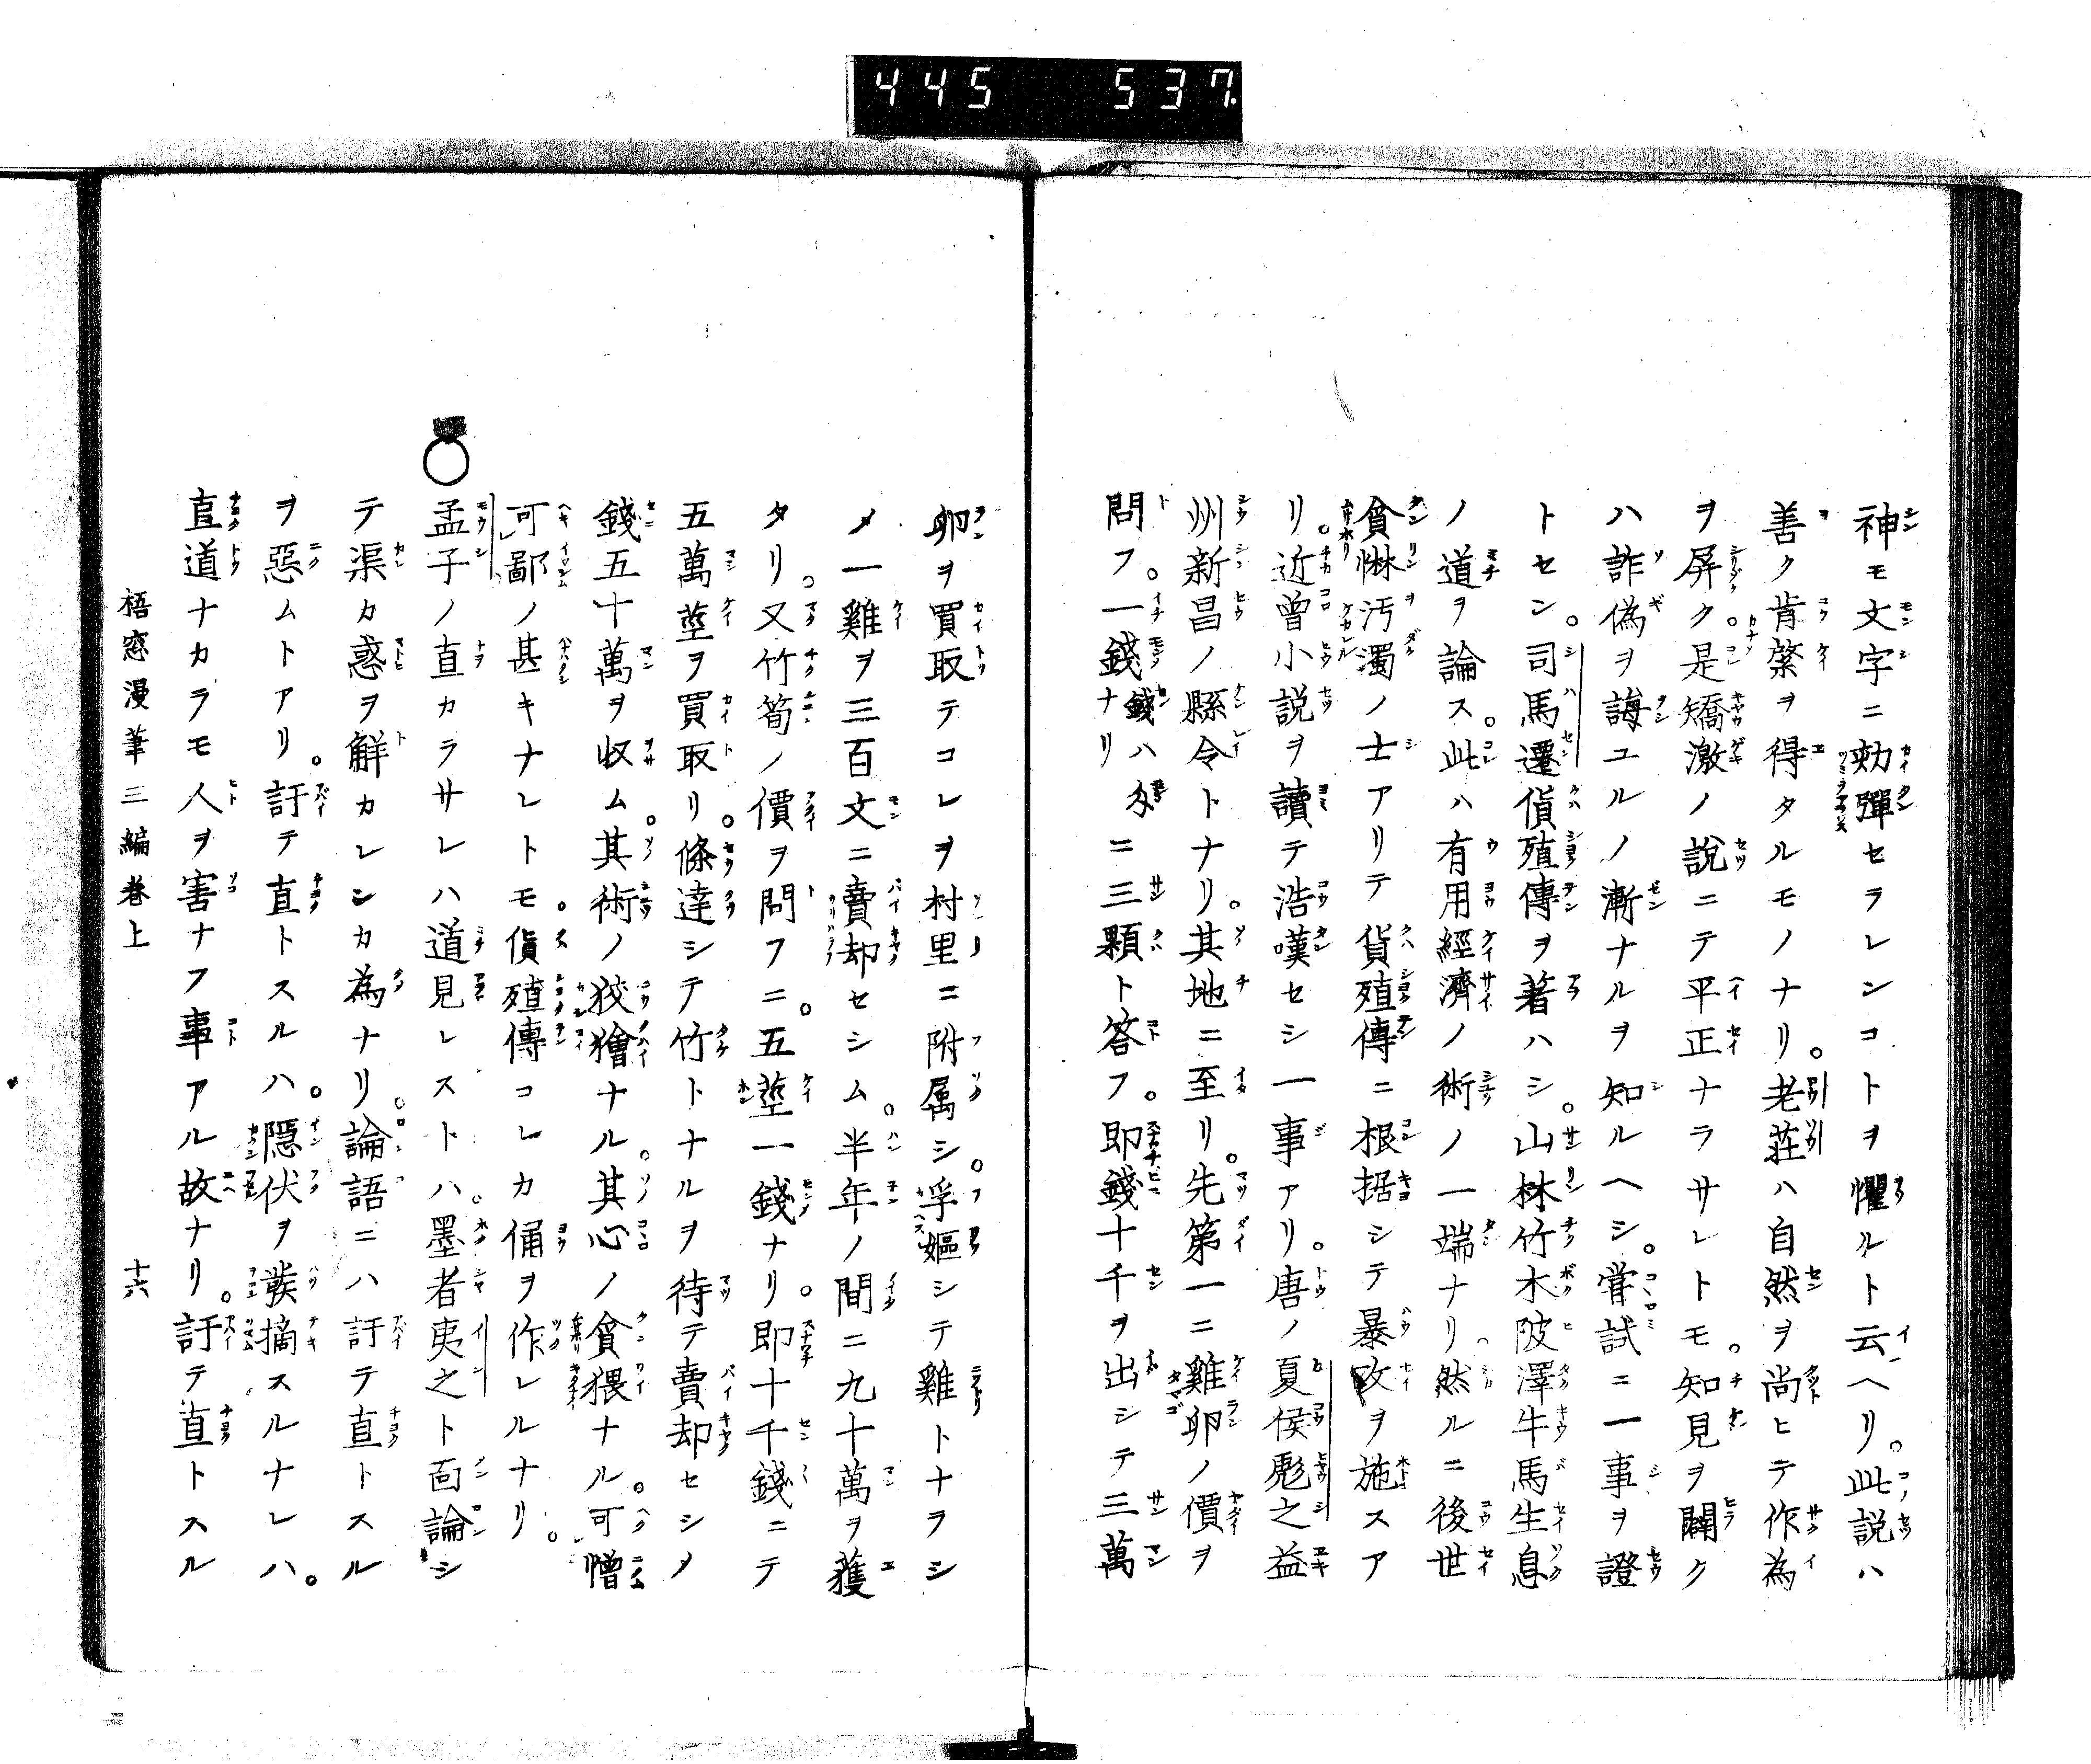 445 537.
神モ文字ニ劾彈セラレンコトヲ懼ルト云ヘリ。此説ハ
善ク肯綮ヲ得タルモノナリ。老莊ハ自然ヲ尚ヒテ作為
ヲ屏ク。是矯激ノ說ニテ平正ナラサレトモ。知見ヲ闢ク
ハ詐偽ヲ誨ユルノ漸ナルヲ知ルヘシ。甞試ニ一事ヲ證
トセン。司馬遷貨殖傳ヲ著ハシ。山林竹木陂澤牛馬生息
ノ道ヲ論ス。此ハ有用經濟ノ術ノ一端ナリ。然ルニ後世
貪惏汚濁ノ士アリテ貨殖傳ニ根据シテ暴政ヲ施スア
リ。近曾小説ヲ讀テ浩嘆セシ一事アリ。唐ノ夏侯彪之益
州新昌ノ縣令トナリ。其地ニ至リ。先第一ニ雞卵ノ價ヲ
問フ。一錢錢ハ文ナリニ三顆ト答フ。即錢十千ヲ出シテ三萬
卵ヲ買取テコレヲ村里ニ附属シ。孚嫗シテ雞トナラシ
メ一雞ヲ三百文ニ賣却セシム。半年ノ間ニ九十萬ヲ獲
タリ。又竹筍ノ價ヲ問フニ。五莖一錢ナリ。即十千錢ニテ
五萬莖ヲ買取リ。條達シテ竹トナルヲ待テ賣却セシメ
錢五十萬ヲ収ム。其術ノ狡獪ナル。其心ノ貪猥ナル。可憎
可鄙ノ甚キナレトモ。貨殖傳コレカ俑ヲ作レルナリ。
孟子ノ直カラサレハ道見レストハ。墨者夷之ト面論シ
テ渠カ惑ヲ解カレシカ為ナリ。論語ニハ訐テ直トスル
ヲ惡ムトアリ。訐テ直トスルハ。隠伏ヲ發摘スルナレハ。
直道ナカラモ人ヲ害ナフ事アル故ナリ。訐テ直トスル
梧窓漫筆三編巻上 十六